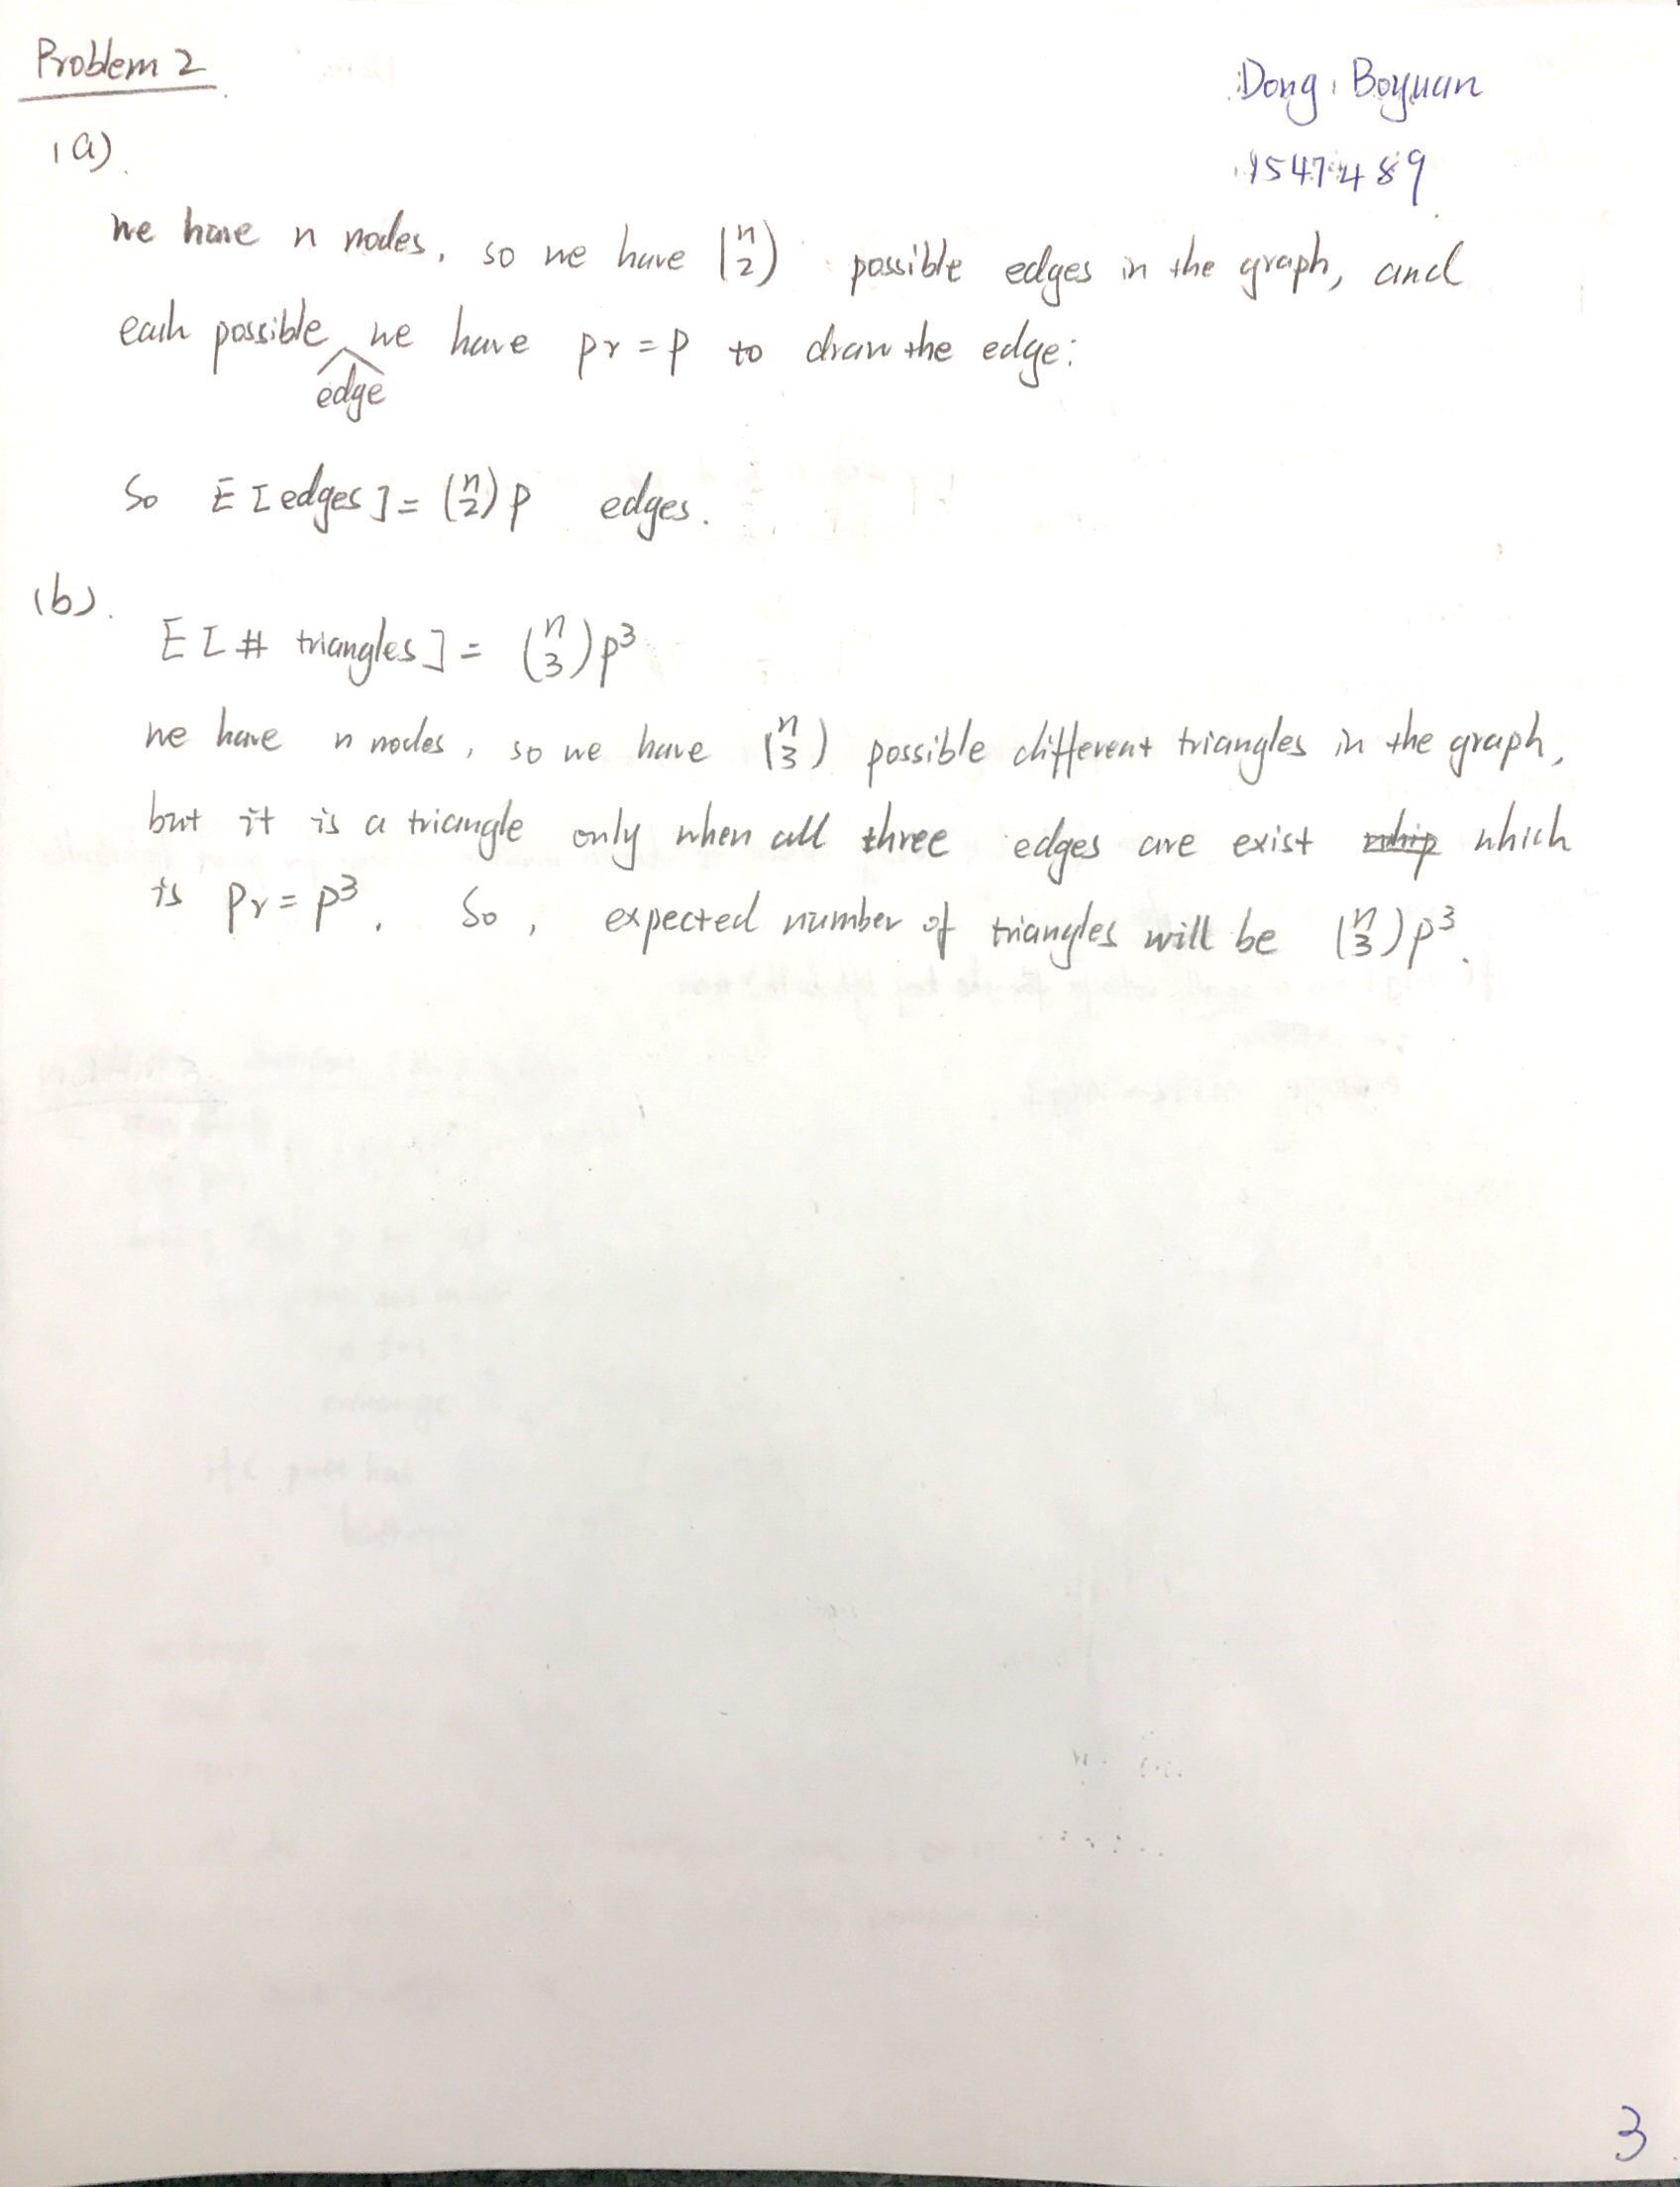 Problem 2
Dong, Boyuan
1547489
(a).
we have n nodes, so we have (n 2) possible edges in the graph, and
each possible edge we have pr = p to draw the edge:
So E[edges] = (n 2) p edges.
(b).
E[# triangles] = (n 3) p³
we have n nodes, so we have (n 3) possible different triangles in the graph,
but it is a triangle only when all three edges are exist which
is Pr = p³. So, expected number of triangles will be (n 3) p³.
3